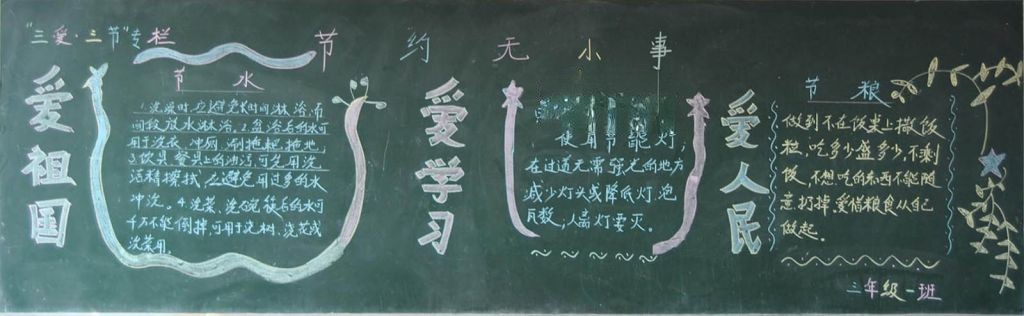 "三爱·三节"专栏
节约无小事
爱祖国
节水
1.洗澡时应避免长时间淋浴,应
间段放水淋浴。2.盆浴后的水可
用于洗衣、冲厕、涮拖把、拖地。
3.饮具、餐具上的油污可先用洗
洁精擦拭,应避免用过多的水
冲洗。4.洗菜、洗碗筷后的水可
千万不能倒掉,可用于浇树、浇花或
浇菜用。
爱学习
使用节能灯,
在过道无需强光的地方
减少灯头或降低灯泡
瓦数,人离灯要灭。
爱人民
节粮
做到不在饭桌上撒饭
粒,吃多少盛多少,不剩
饭,不想吃的东西不能随
意扔掉,爱惜粮食从自己
做起。
三年级一班